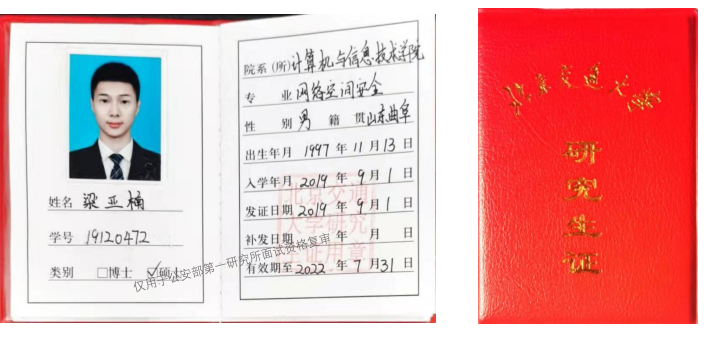 姓名 梁亚楠
学号 19120472
类别 □博士 ☑硕士
院系(所)计算机与信息技术学院
专 业 网络空间安全
性 别 男 籍 贯 山东曲阜
出生年月 1997 年 11 月 13 日
入学年月 2019 年 9 月 1 日
发证日期 2019 年 9 月 1 日
补发日期 年 月 日
有效期至 2022 年 7 月 31 日
北京交通
大学研究
生证用章
仅用于公安部第一研究所面试资格复审
北京交通大学
研究生证